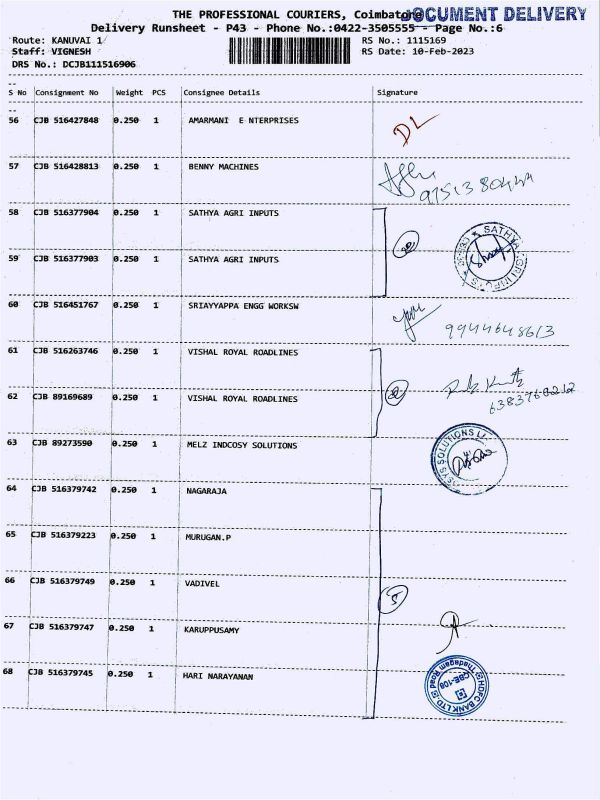 THE PROFESSIONAL COURIERS, Coimbatore
DOCUMENT DELIVERY
Delivery Runsheet - P43 - Phone No.:0422-3505555 - Page No.:6
Route: KANUVAI 1
RS No.: 1115169
Staff: VIGNESH
RS Date: 10-Feb-2023
DRS No.: DCJB111516906
S No Consignment No Weight PCS Consignee Details Signature
56 CJB 516427848 0.250 1 AMARMANI E NTERPRISES DL
57 CJB 516428813 0.250 1 BENNY MACHINES
58 CJB 516377904 0.250 1 SATHYA AGRI INPUTS
59 CJB 516377903 0.250 1 SATHYA AGRI INPUTS
SATHYA AGRI INPUTS
60 CJB 516451767 0.250 1 SRIAYYAPPA ENGG WORKSW
9944648613
61 CJB 516263746 0.250 1 VISHAL ROYAL ROADLINES
62 CJB 89169689 0.250 1 VISHAL ROYAL ROADLINES
63 CJB 89273590 0.250 1 MELZ INDCOSY SOLUTIONS
SYS SOLUTIONS
64 CJB 516379742 0.250 1 NAGARAJA
65 CJB 516379223 0.250 1 MURUGAN.P
66 CJB 516379749 0.250 1 VADIVEL
5
67 CJB 516379747 0.250 1 KARUPPUSAMY
68 CJB 516379745 0.250 1 HARI NARAYANAN
HDFC BANK LTD
Thadagam Road
CBE-108